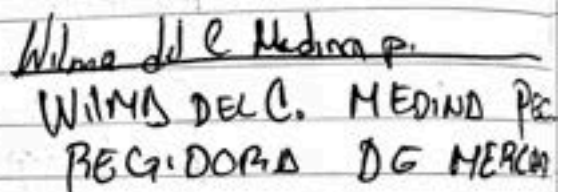 Wilma del C Medina p.
WILMA DEL C. MEDINA PEC
REGIDORA DE MERCA